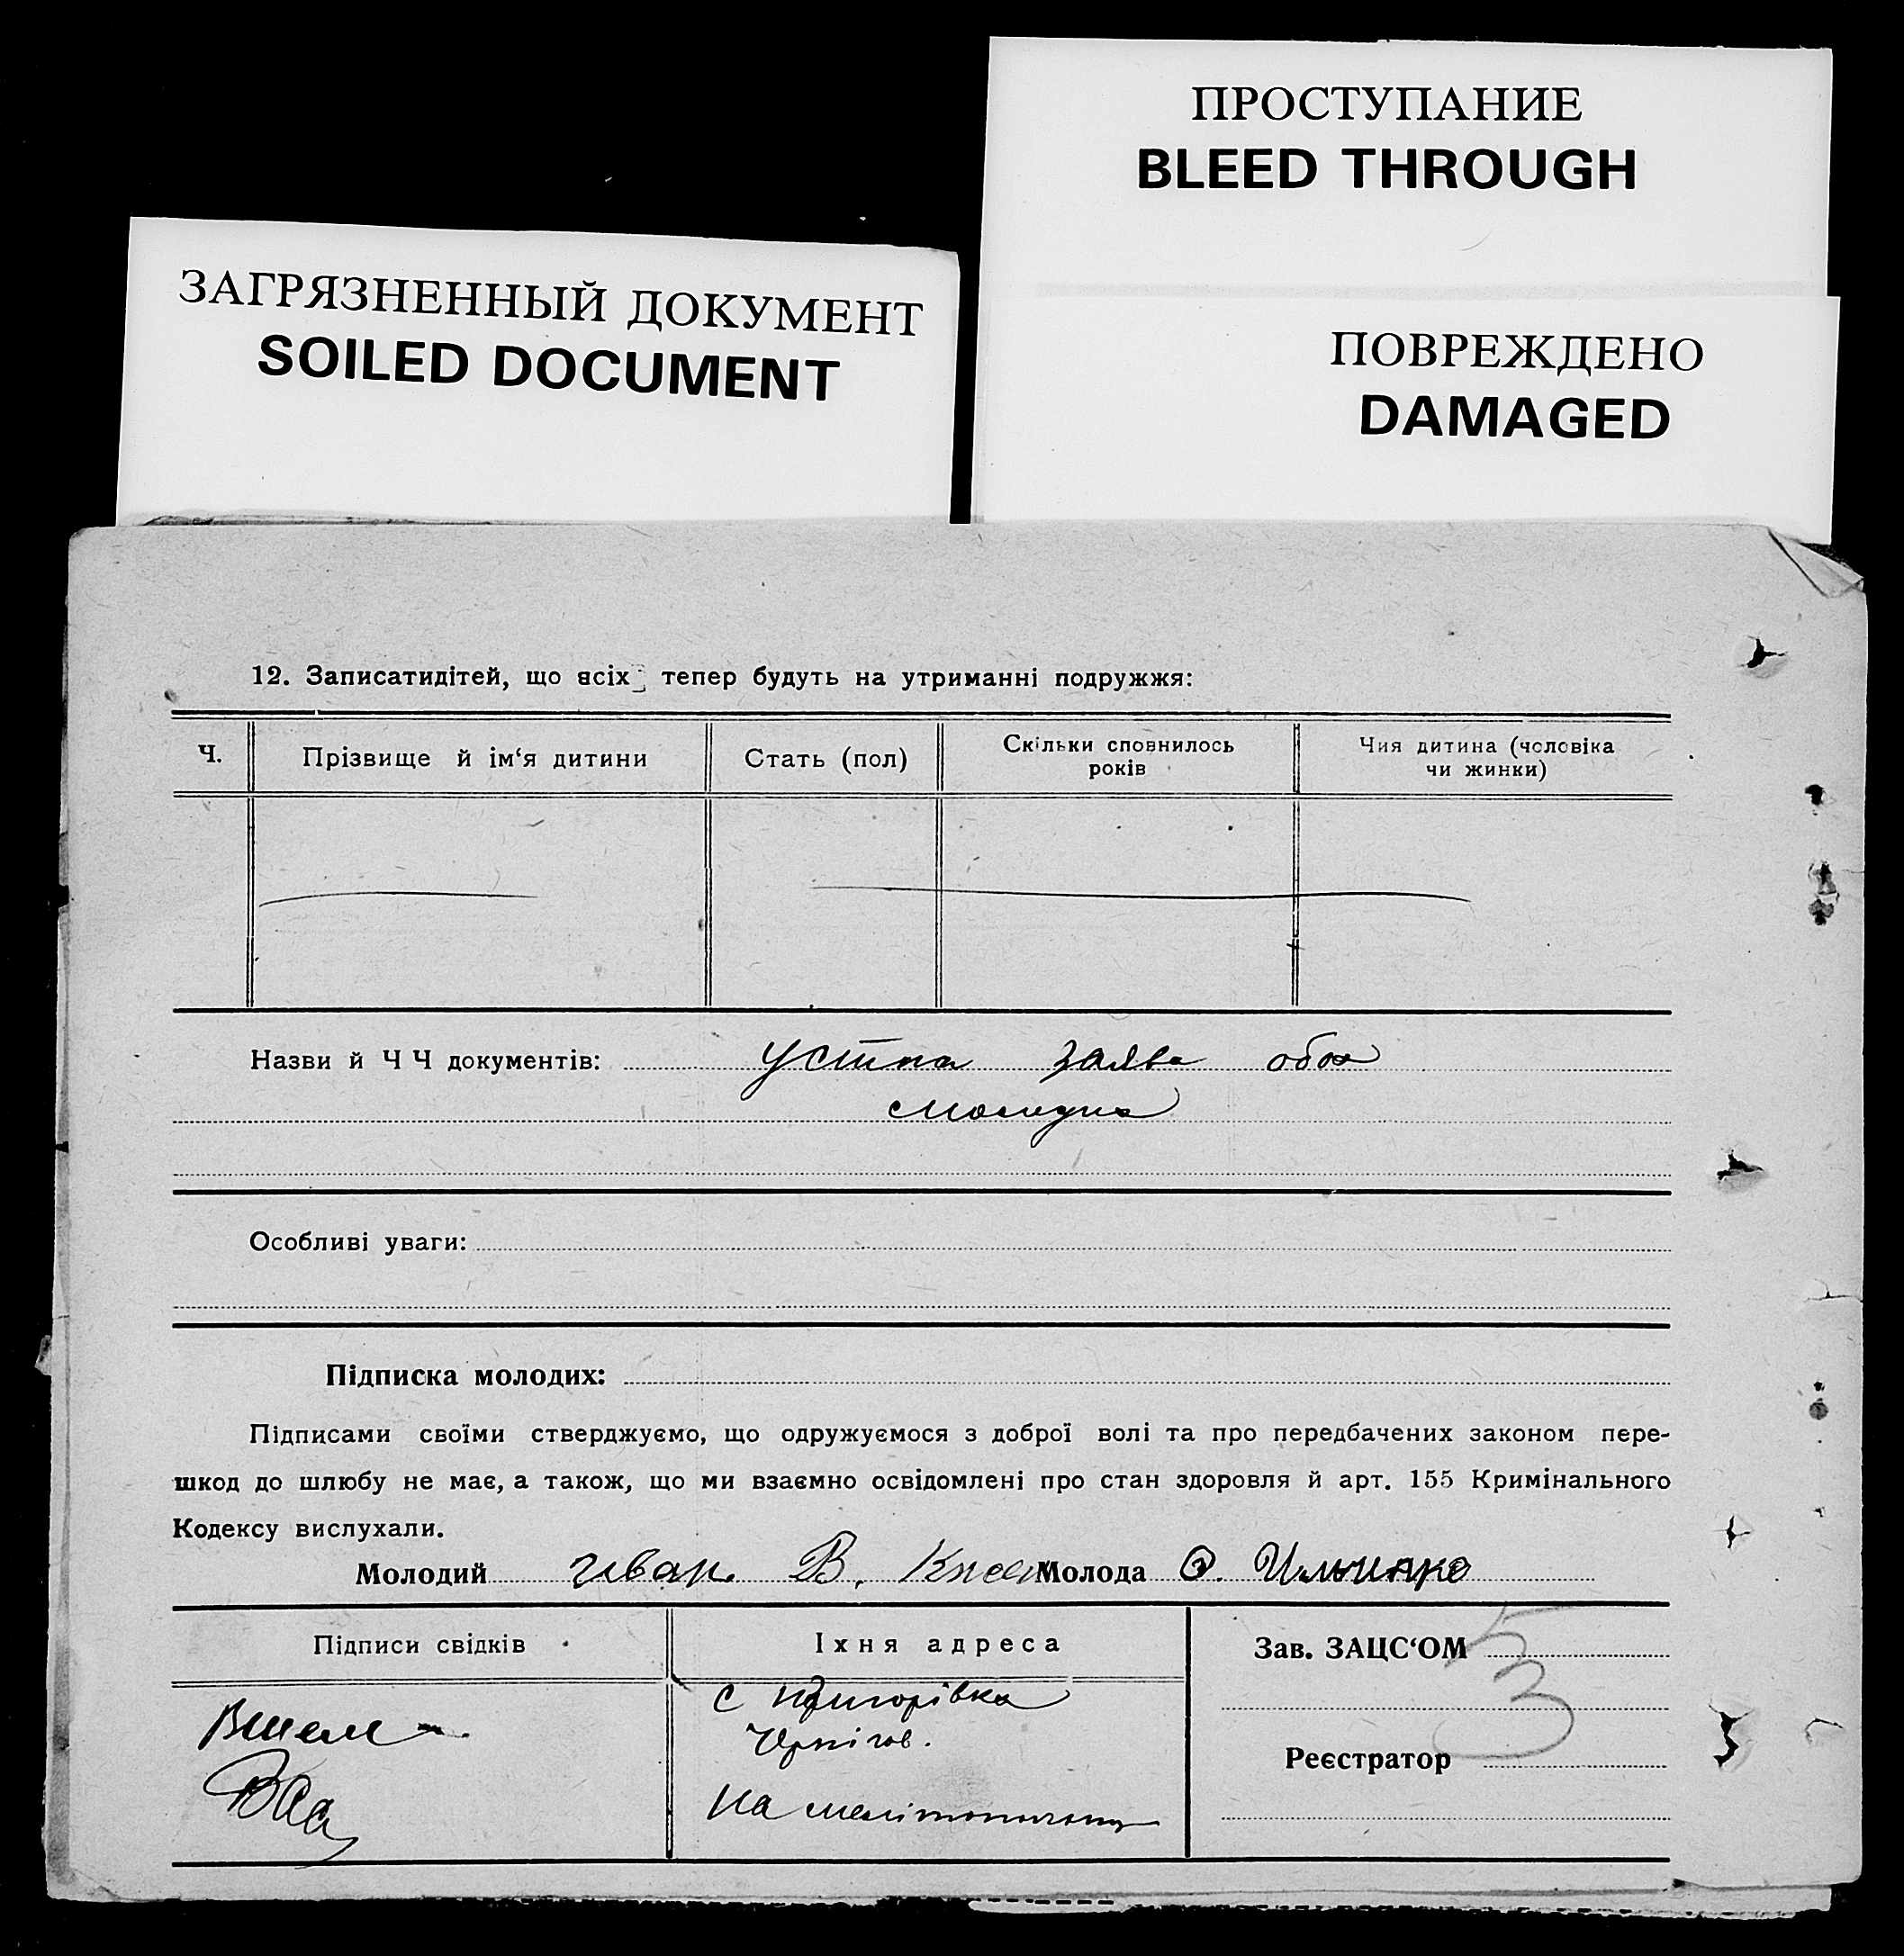 ПРОСТУПАНИЕ
BLEED THROUGH
ЗАГРЯЗНЕННЫЙ ДОКУМЕНТ
SOILED DOCUMENT
ПОВРЕЖДЕНО
DAMAGED
12. Записатидітей, що всіх тепер будуть на утриманні подружжя:
Ч.
Прізвище й ім‘я дитини
Стать (пол)
Скільки сповнилось
років
Чия дитина (чоловіка
чи жинки)
Назви й Ч Ч документів: устна заява обох
молодих
Особливі уваги:
Підписка молодих:
Підписами своїми стверджуємо, що одружуємося з доброї волі та про передбачених законом пере-
шкод до шлюбу не має, а також, що ми взаємно освідомлені про стан здоровля й арт. 155 Кримінального
Кодексу вислухали.
Молодий Иван В. Молода О.
Підписи свідків
Їхня адреса
Зав. ЗАЦС‘ОМ
5
3
с
Чернігов.
На
Реєстратор